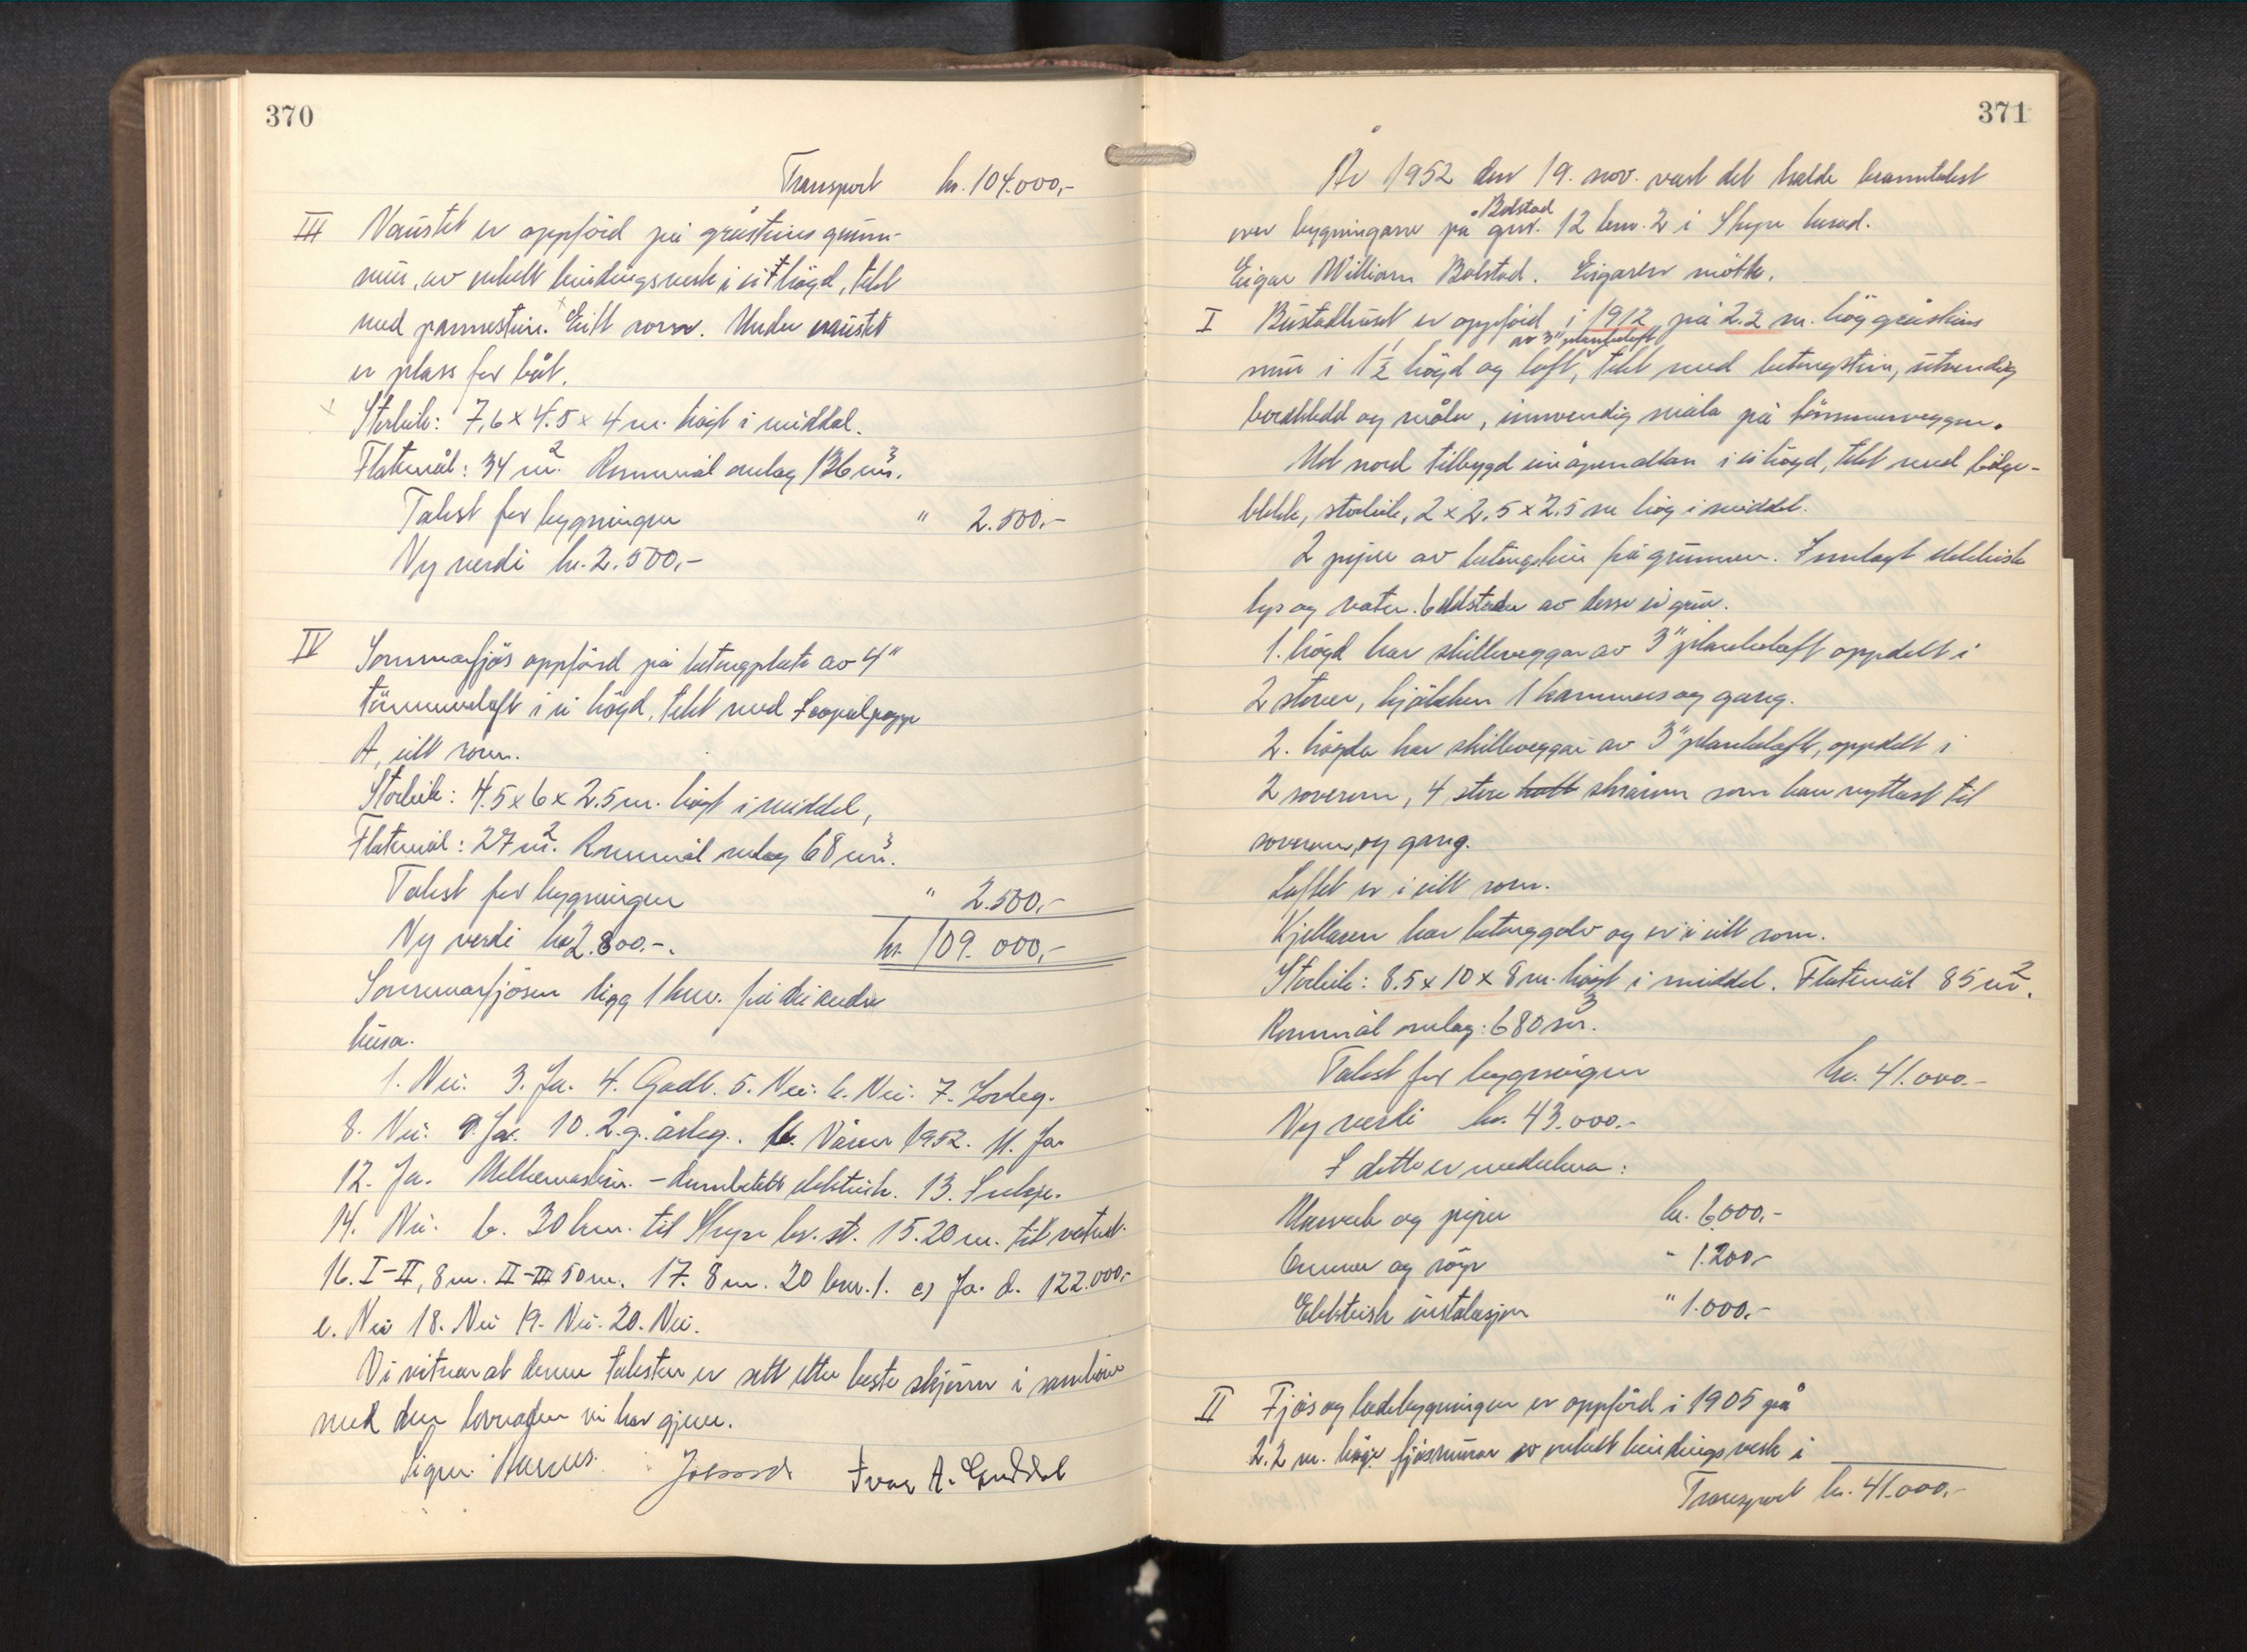 370
Transport kr. 104.000,-
III Naustet er oppförd på gråsteins grunn-
mur, av enkelt bindingsverk i ei högd, tekt
med pannestein. Eitt rom. Under naustet
er plass for båt.
Storleik: 7,6 x 4.5 x 4 m. högt i middel.
Flatemål: 34 m². Rommål omlag 136 m³.
Takst for bygningen " 2.500.-
Ny verdi kr. 2.500,-
IV Sommarfjös oppförd på betongplate av 4"
tömmerloft i ei högd, tekt med
A, eitt rom.
Storleik: 4.5 x 6 x 2.5 m. högt i middel,
Flatemål: 27 m². Rommål omlag 68 m³.
Takst for bygningen " 2.500,-
Ny verdi kr 2.800.-. kr. 109.000,-
Sommarfjösen ligg 1 km. frå dei andre
husa.
1. Nei. 3. Ja. 4. Godt. 5. Nei. 6. Nei. 7. Forsleg.
8. Nei. 9. Ja. 10. 2. g. årleg. b. Våren 1952. 11. Ja.
12. Ja. Melkemaskin. - elektrisk. 13. Sukje.
14. Nei. b. 30 km. til Skeje br. st. 15. 20 m. til vatnet.
16. I-II, 8 m. II-III 50 m. 17. 8 m. 20 bnr. 1. c) Ja. d. 122.000,-
e. Nei 18. Nei 19. Nei. 20. Nei.
Vi vitnar at denne taksten er sett etter beste skjönn i samhöve
med den lovnaden vi har gjeve.
Sigm. Ivar A.
371
År 1952 den 19. nov. vart det halde branntakst
over bygningane på Bolstad gnr. 12 bnr. 2 i herad.
Eigar William Bolstad. Eigaren mötte.
I Bustadhuset er oppförd i 1912 på 2.2 m. hög gråsteins
mur i 1½ högd og loft, av 3" plankeloft tekt med betongstein, utvendig
bordkledd og måla, innvendig måla på tömmerveggen.
Mot nord tilbygd ein åpen altan i ei högd, tekt med bölge-
blekk, storleik, 2 x 2.5 x 2.5 m hög i middel.
2 piper av betongstein frå grunnen. Innlagt elektrisk
lys og vatn. 6 eldstader av desse ei grue.
1. högd har skilleveggar av 3" plankeloft oppdelt i
2 stover, kjökken 1 kammers og gang.
2. högda har skilleveggar av 3" plankeloft, oppdelt i
2 soverom, 4 store skrårom som kan nyttast til
soverom, og gang.
Loftet er i eitt rom.
Kjellaren har betonggolv og er i eitt rom.
Storleik: 8.5 x 10 x 8 m. högt i middel. Flatemål 85 m².
Rommål omlag: 680 m³.
Takst for bygningen kr. 41.000.-
Ny verdi kr. 43.000.-
I dette er medrekna:
Murverk og piper kr. 6.000,-
Omnar og röyr " 1.200,-
Elektrisk installasjon " 1.000,-
II Fjös og lödebygningen er oppförd i 1905 på
2.2 m. höge fjösmurar av enkelt bindingsverk i
Transport kr. 41.000,-